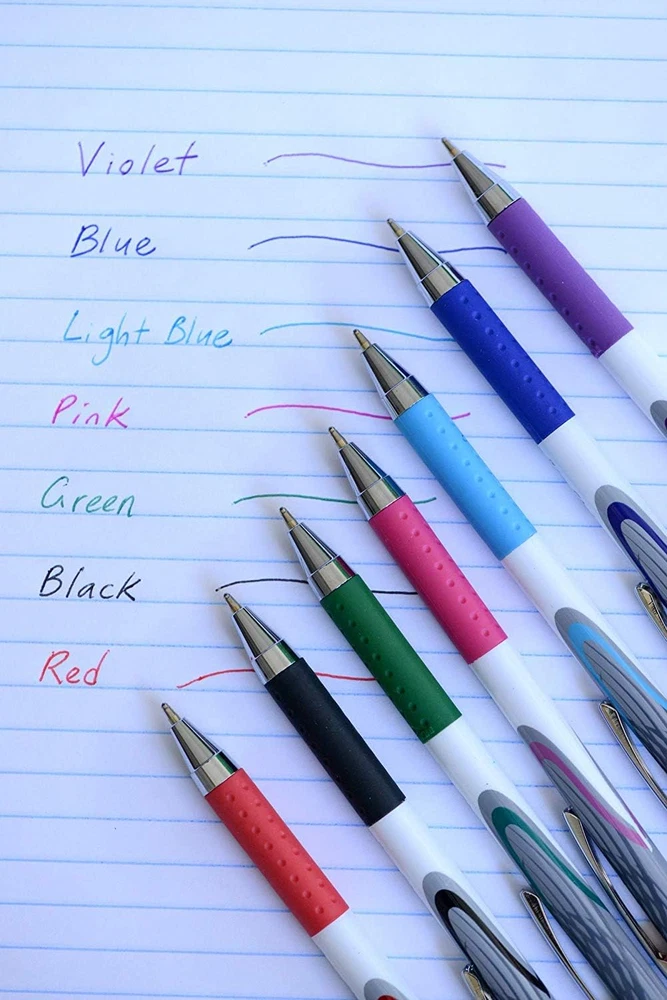 Violet
Blue
Light Blue
Pink
Green
Black
Red